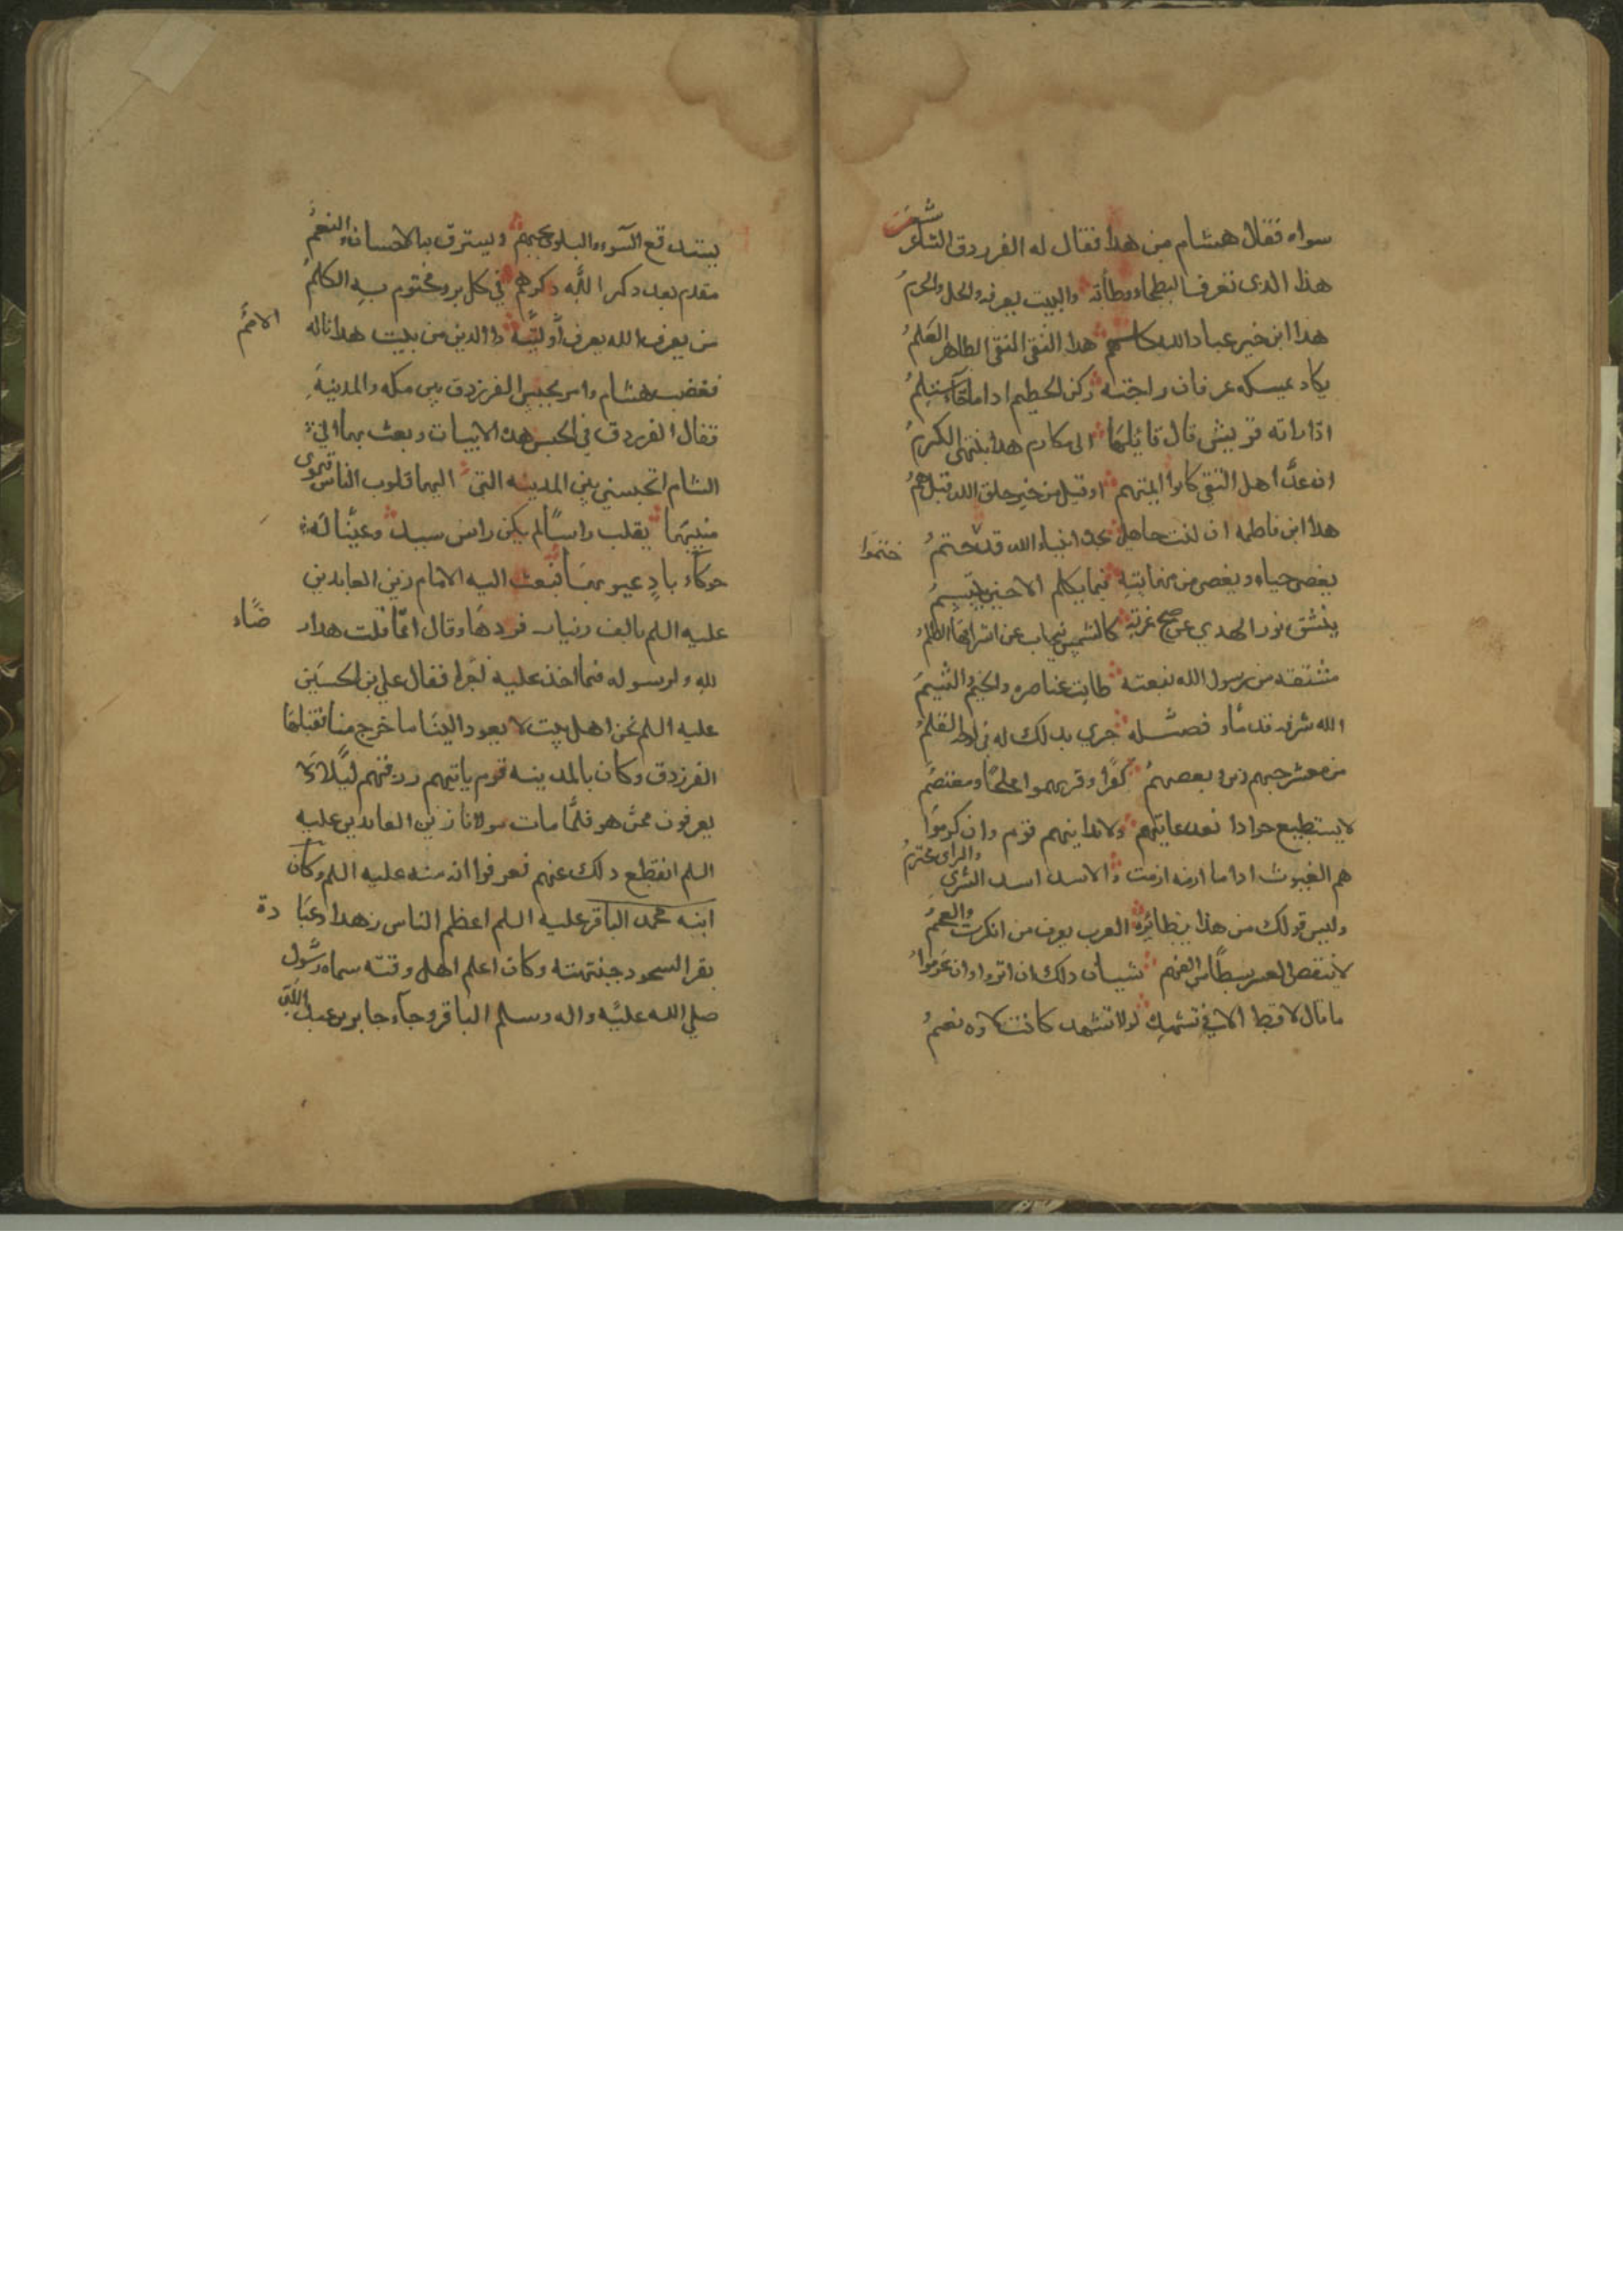 سواه فقال هشام من هذا فقال له الفرزدق الشاعر شعر
هذا الذى تعرف البطحاء وطأته والبيت يعرفه والحل والحرم
هذا ابن خير عباد الله كلهم هذا التقى النقى الطاهر العلم
يكاد يمسكه عرفان راحته ركن الحطيم اذا ما جاء يستلم
اذا راته قريش قال قائلها الى مكارم هذا ينتهى الكرم
ان عد اهل التقى كانوا ائمتهم او قيل من خير خلق الله قيل هم
هذا ابن فاطمه ان كنت جاهله بجده انبياء الله قد ختم ختموا
يغضى حياء ويغضى من مهابته فما يكلم الا حين يبتسم
ينشق نور الهدي عن صبح غرته كالشمس ينجاب عن اشراقها الظلم
مشتقه من رسول الله نبعته طابت عناصره والخيم والشيم
الله شرفه قدما وفضله جرى بذلك له فى لوحه القلم
من معشر حبهم دين وبغضهم كفر وقربهم ملجا ومعتصم
لا يستطيع جوادا بعد غايتهم ولا يدانيهم قوم وان كرموا
هم الغيوث اذا ما ازمه ازمت والاسد اسد الشرى والراى محترم
وليس قولك من هذا بضائره العرب يعرف من انكرت والعجم
لا ينقص العسر بسطا من اكفهم سيان ذلك ان اثروا وان عدموا
ما قال لا قط الا فى تشهده لولا التشهد كانت لاؤه نعم
يستدفع السوء والبلوى بحبهم ويسترق به الاحسان والنعم
مقدم بعد ذكر الله ذكرهم في كل بر ومختوم به الكلم
من يعرف الله يعرف اوليه ذا الدين من بيت هذا ناله الامم
فغضب هشام وامر بحبس الفرزدق بين مكه والمدينة
فقال الفرزدق فى الحبس هذه الابيات وبعث بها الى
الشام اتحبسني بين المدينه التى اليها قلوب الناس تهوى
منيبها يقلب راسا لم يكن راس سيد وعينا له
حولاء باد عيوبها فبعث اليه الامام زين العابدين
عليه السلم بالف دينار فردها وقال انما قلت هذا غضاء
لله ولرسوله فما اخذ عليه اجرا فقال علي بن الحسين
عليه السلم نحن اهل بيت لا يعود الينا ما خرج منا فقبلها
الفرزدق وكان بالمدينه قوم ياتيهم رزقهم ليلا لا
يعرفون ممن هو فلما مات مولانا زين العابدين عليه
السلم انقطع ذلك عنهم فعرفوا انه منه عليه السلم وكان
ابنه محمد الباقر عليه السلم اعظم الناس زهدا وعبا دة
بقر السجود جبهته وكان اعلم اهل وقته سماه رسول
صلى الله عليه واله وسلم الباقر وجاء جابر بن عبد الله